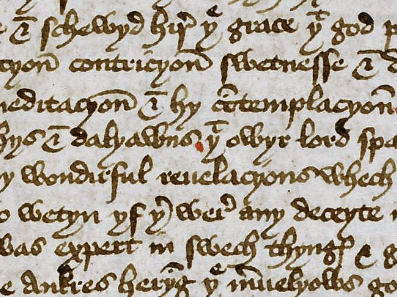 & schewyd hir þe grace þt god p
cyon contricyon swetnesse &
meditacyon & hy contemplacyon
hys & dalyawns þt owyr lord spa
y wondirful reuelacyons whech
o wetyn yf þer wer any deceyte
was expert in swech thyngs & g
e ankres heryng þe meruelyows go